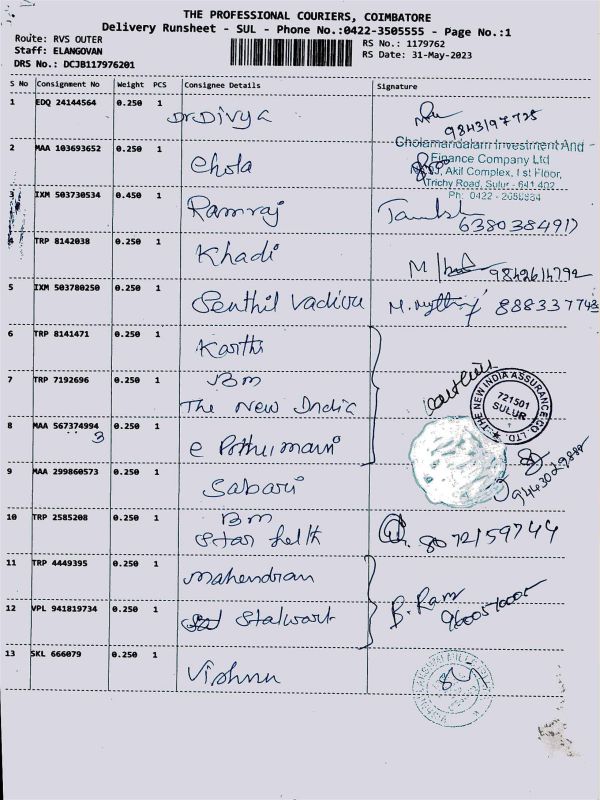 THE PROFESSIONAL COURIERS, COIMBATORE
Delivery Runsheet - SUL - Phone No.:0422-3505555 - Page No.:1
Route: RVS OUTER
Staff: ELANGOVAN
DRS No.: DCJB117976201
RS No.: 1179762
RS Date: 31-May-2023
S No Consignment No Weight PCS Consignee Details Signature
1 EDQ 24144564 0.250 1 Dr.Divya
9843197725
2 MAA 103693652 0.250 1 Chola
Cholamandalam Investment And
Finance Company Ltd
Akil Complex, I st Floor,
Trichy Road, Sulur - 641 402
Ph: 0422 -
3 IXM 503730534 0.450 1 Ramraj
6380384917
4 TRP 8142038 0.250 1 Khadi
M 9842614792
5 IXM 503780250 0.250 1 Senthil Vadivu
M. 888337743
6 TRP 8141471 0.250 1 Karthi
7 TRP 7192696 0.250 1 BM
The New India
THE NEW INDIA ASSURANCE CO. LTD.
721501
SULUR
8 MAA 567374994 0.250 1 e Pothumani
3
9 MAA 299860573 0.250 1 Sabari
10 TRP 2585208 0.250 1 BM
Star helth
8072159744
11 TRP 4449395 0.250 1 Mahendran
12 VPL 941819734 0.250 1 Stalwart
B. Ram
13 SKL 666079 0.250 1 Vishnu